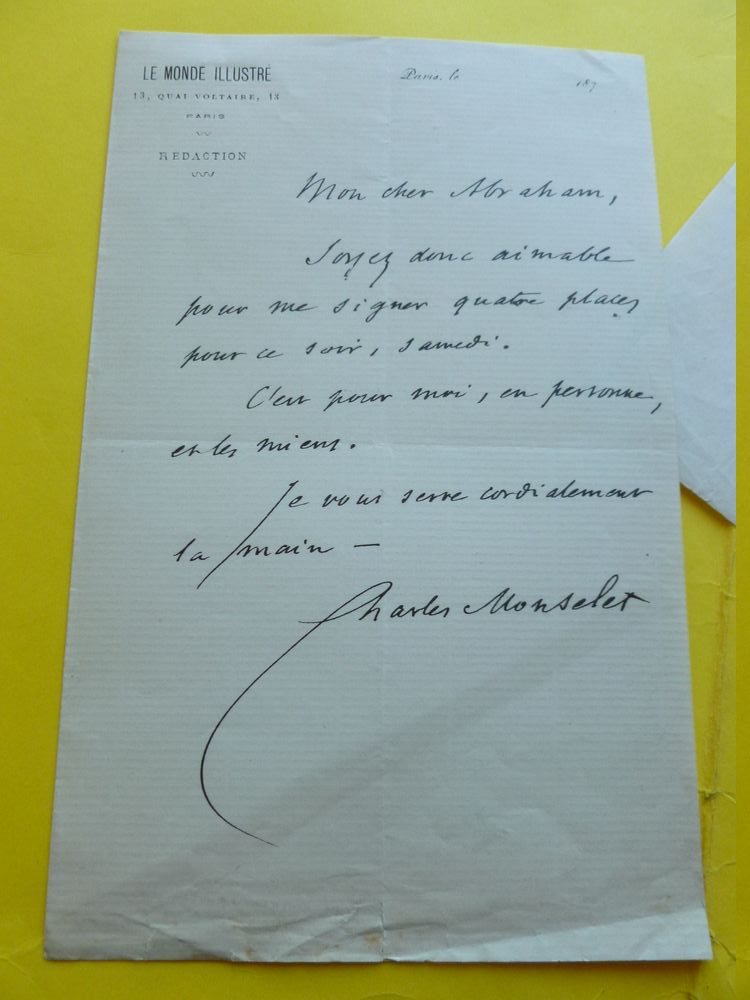 LE MONDE ILLUSTRÉ
13, QUAI VOLTAIRE, 13
PARIS
RÉDACTION
Paris, le 187
Mon cher Abraham,
Soyez donc aimable
pour me signer quatre places
pour ce soir, samedi.
C'est pour moi, en personne,
et les miens.
Je vous serre cordialement
la main —
Charles Monselet